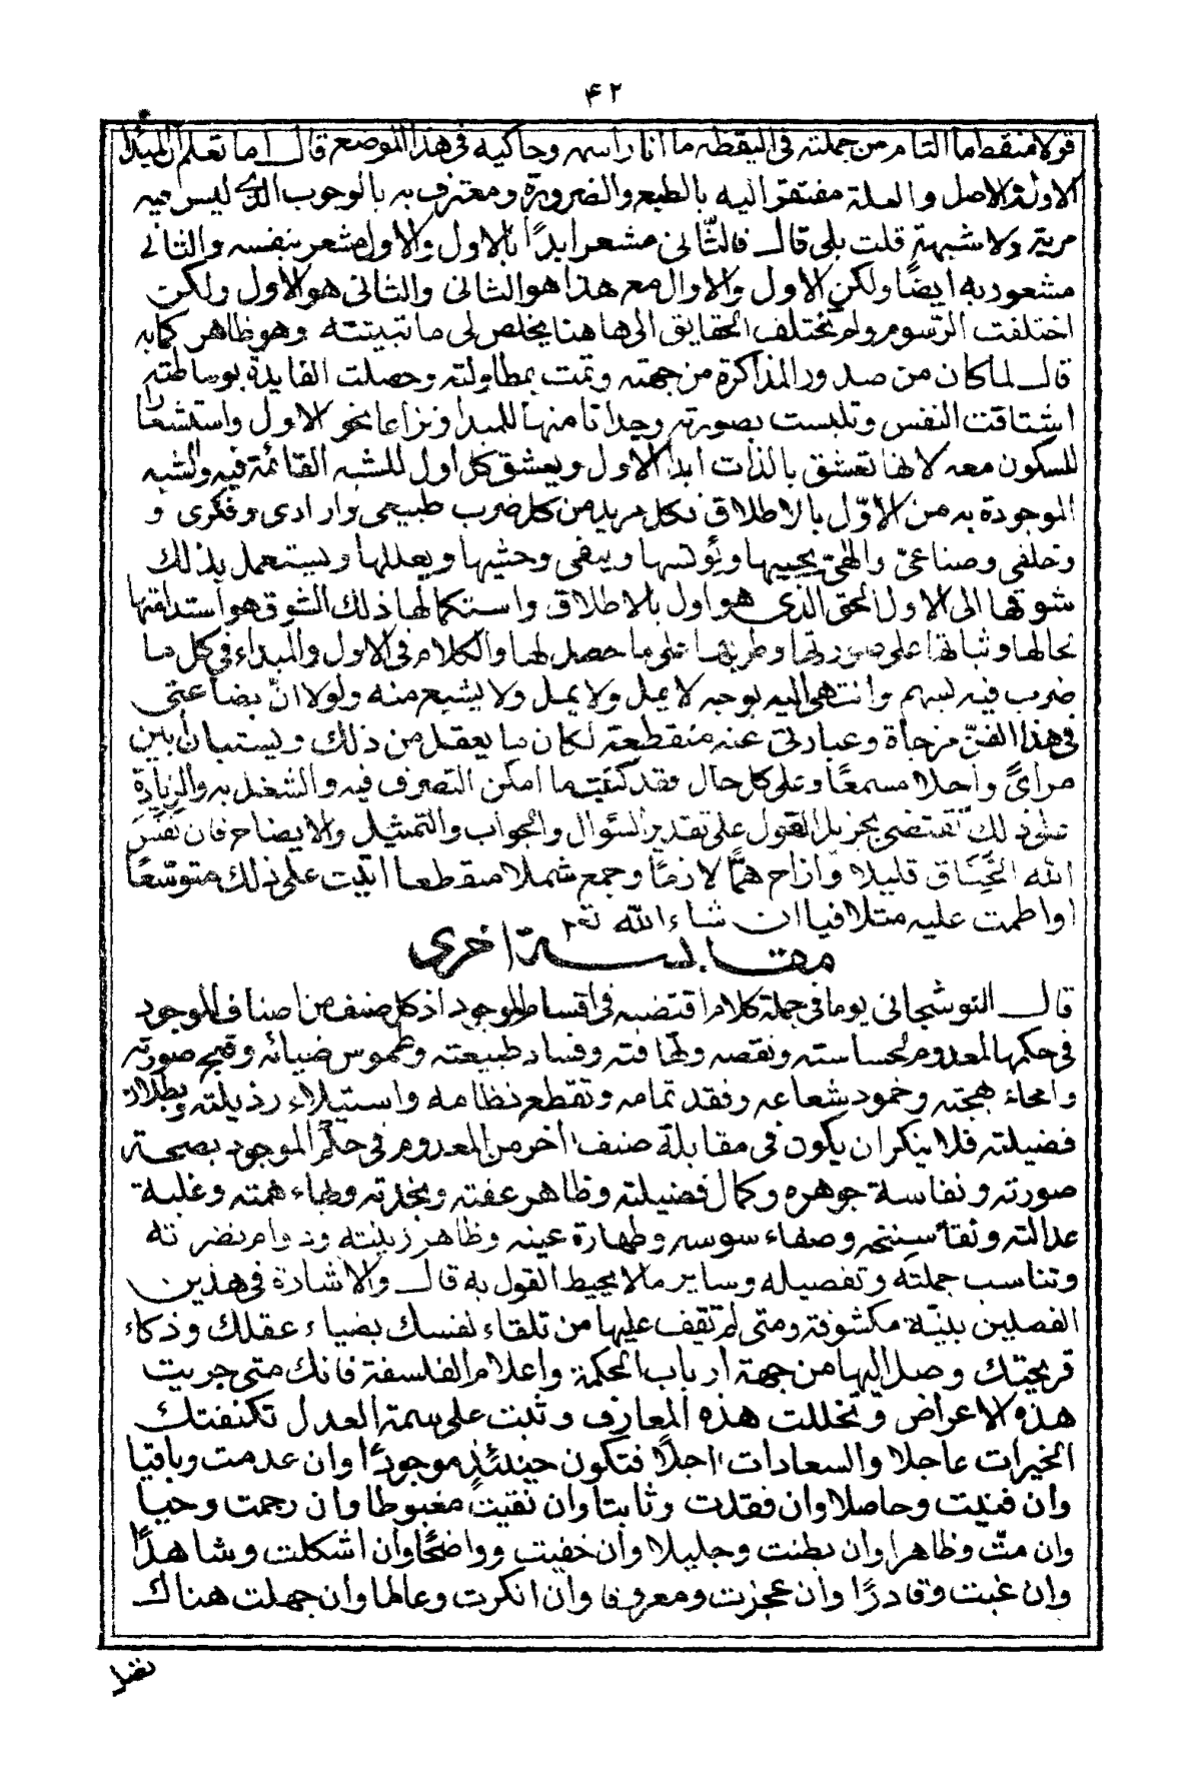 ۴۲
قولا منقطعا التام من جملته فى اليقظه ما انا راسمه وحاكيه فى هذا الموضع قال اما تعلم ان المبدأ
الاول والاصل والعلة مفتقر اليه بالطبع والضرورة ومعترف به بالوجوب الذى ليس فيه
مرية ولا شبهة قلت بلى قال فالثّانى مشعر ابدًا بالاول والاول مشعر بنفسه والثانى
مشعور به ايضًا ولكن الاول والاوال مع هذا هو الثانى والثانى هو الاول ولكن
اختلفت الرّسوم ولم تختلف الحقايق الى هاهنا يخلص لى ما تبينته وهو ظاهر كما به
قال لما كان من صدور المذاكرة من جهته وتمت بمطاولته وحصلت الفايدة بوساطته
اشتاقت النفس وتلبست بصورته وجدانا منها للمبدا ونزاعا نحو الاول واستشعارا
للسكون معه لانها تعشق بالذات ابدا الاول ويعشق كل اول للشبه القائمة فيه والشبه
الموجودة به من الاوّل بالاطلاق فكل مريد من كل ضرب طبيعى وارادى وفكرى و
وخلفى وصناعىّ والهىّ يحييها ويؤنسها وينفى وحشيها ويعللها ويستعمل بذلك
شوقها الى الاول الحق الذى هو اول بالاطلاق واستكمالها ذلك الشوق هو استدامتها
لحالها وثباتها على صورتها وطربها على ما حصل لها والكلام فى الاول والمبداء فى كل ما
ضرب فيه بسهم وانتهى اليه بوجه لا يمل ولا يمل ولا يشبع منه ولولا انّ بضاعتى
فى هذا الفنّ مزجاة وعبارتى عنه منقطعة لكان ما يعقل من ذلك ويستبان ابين
مراىً واحلا مسمعًا وعلى كل حال فقد كتبت ما امكن التصرف فيه والشغل به والزيادة
على ذلك تقتضى تجزيل القول على تقدير السؤال والجواب والتمثيل والايضاح فان نفّس
الله الخناق قليلا وازاح همًّا لازمًا وجمع شملا منقطعا اتيت على ذلك متوسّعًا
او اطمت عليه متلافيا ان شاء الله تع
مقابسة اخرى
قال النوشجانى يوما فى جملة كلام اقتضبه فى اقساط الموجود اذ كل صنف من اصناف الموجود
فى حكمها المعدوم لخساسته ونقصه وتهافته وفساد طبيعته وطموس ضيائه وقبح صورته
وامحاء بهجته وخمود شعاعه وفقد تمامه وتقطع نظامه واستيلاء رذيلته وبطلان
فضيلته فلا ينكر ان يكون فى مقابلة صنف آخر من المعدوم فى حكم الموجود بصحة
صورته ونفاسة جوهره وكمال فضيلته وظاهر عفته ونجدته وطماء همته وغلبة
عدالته ونقاء سنخه وصفاء سوسه وطهارة عينه وظاهر زينته ودوام نضرته
وتناسب جملته وتفصيله وساير ما لا يحيط القول به قال والاشارة فى هذين
الفصلين بينّة مكشوفة ومتى لم تقف عليها من تلقاء نفسك بضياء عقلك وذكاء
قريحتك وصل اليها من جهة ارباب الحكمة واعلام الفلسفة فانك متى جريت
هذه الاعراض وتخللت هذه المعارف وثبت على سمة العدل تكنفتك
الخيرات عاجلا والسعادات آجلاً فتكون حينئذٍ موجودًا وان عدمت وباقيا
وان فنيت وحاصلا وان فقدت وثابتا وان نفيت مغبوطا وان رحمت وحيا
وان متّ وظاهرا وان بطنت وجليلا وان خفيت وواضحًا وان اشكلت وشاهدًا
وان غبت وقادرًا وان عجزت ومعروفا وان انكرت وعالما وان جهلت هناك